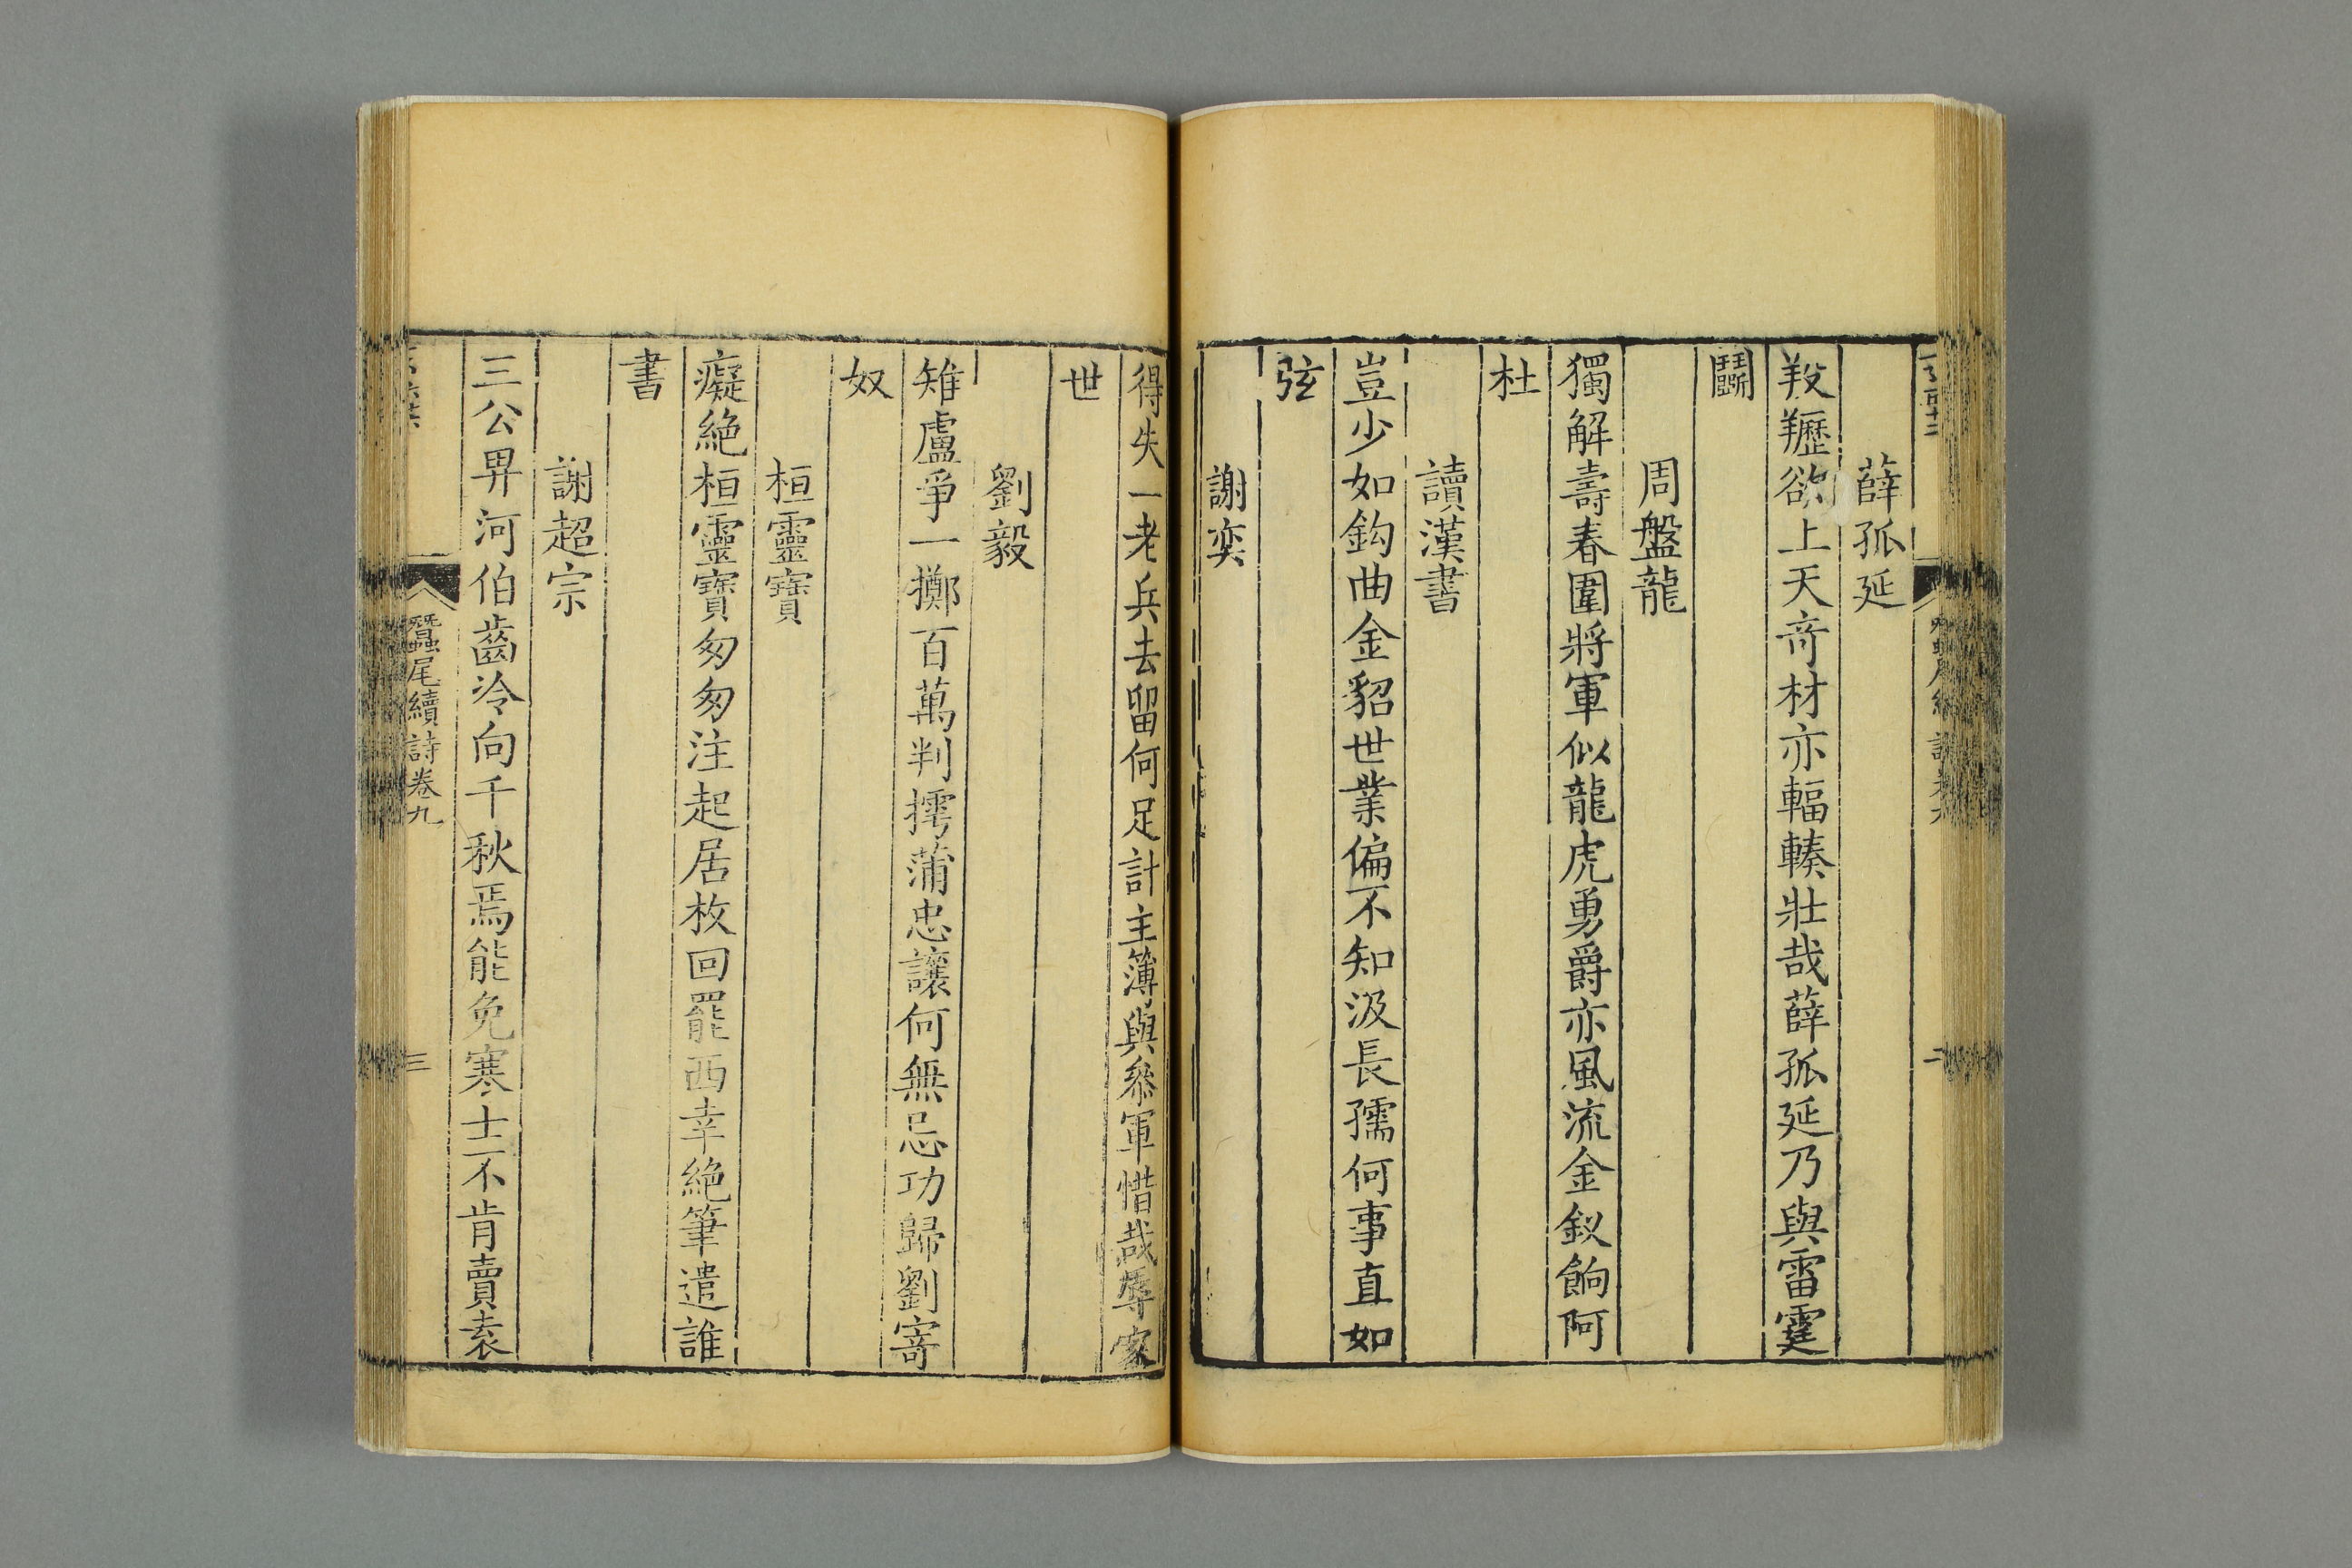 薛孤延
羖䍽欲上天奇材亦輻輳壯哉薛孤延乃與雷霆
鬪
周盤龍
獨解壽春圍將軍似龍虎勇爵亦風流金釵餉阿
杜
讀漢書
豈少如鈎曲金貂世業偏不知汲長孺何事直如
弦
謝奕
得失一老兵去留何足計主簿與參軍惜哉辱家
世
劉毅
雉盧爭一擲百萬判摴蒲忠讓何無忌功歸劉寄
奴
桓靈寶
癡絶桓靈寶匆匆注起居枚回罷西幸絶筆遣誰
書
謝超宗
三公畀河伯齒冷向千秋焉能免寒士不肯賣袁
蠶尾續詩卷九
三